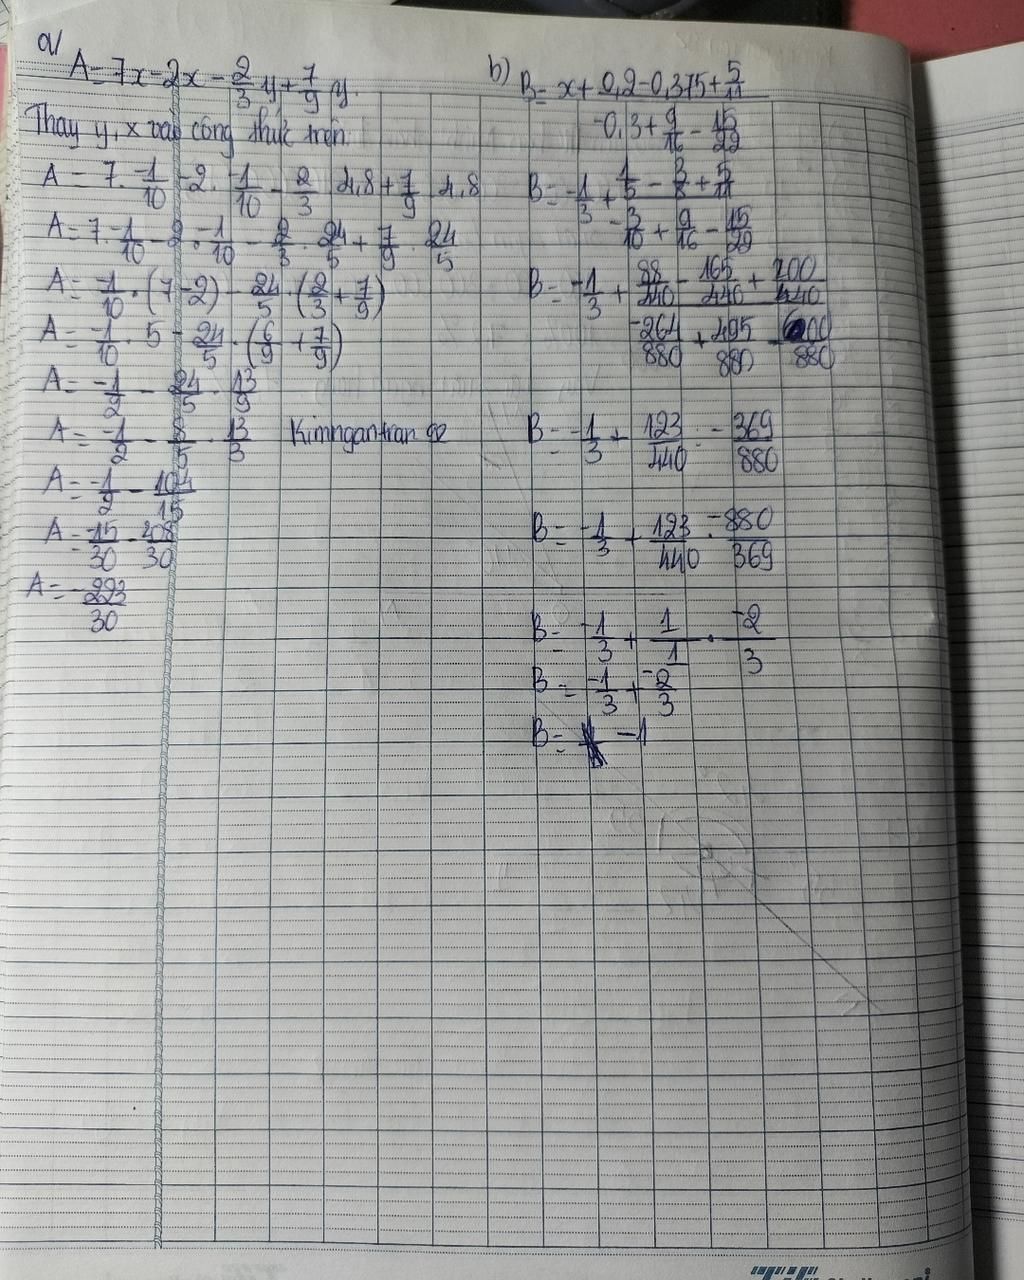 a/
A = 7x - 2x - 2/3 y + 7/9 y.
Thay y, x vào công thức trên.
A = 7 . -1/10 - 2 . -1/10 - 2/3 . 4,8 + 7/9 . 4,8
A = 7 . -1/10 - 2 . -1/10 - 2/3 . 24/5 + 7/9 . 24/5
A = -1/10 . (7 - 2) - 24/5 . (2/3 + 7/9)
A = -1/10 . 5 - 24/5 . (6/9 + 7/9)
A = -1/2 - 24/5 . 13/9
A = -1/2 - 8/5 . 13/3
Kimngantran92
A = -1/2 - 104/15
A = -15/30 - 208/30
A = -223/30
b)
B = x + (0,2 - 0,375 + 5/11)/(-0,3 + 9/16 - 15/22)
B = -1/3 + (1/5 - 3/8 + 5/11)/(-3/10 + 9/16 - 15/22)
B = -1/3 + (88/440 - 165/440 + 200/440)/(-264/880 + 495/880 - 600/880)
B = -1/3 + 123/440 : -369/880
B = -1/3 + 123/440 . -880/369
B = -1/3 + 1/1 . -2/3
B = -1/3 + -2/3
B = -1